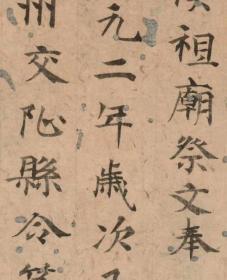 祖廟祭文奉
元二年歲次
州交阯縣令